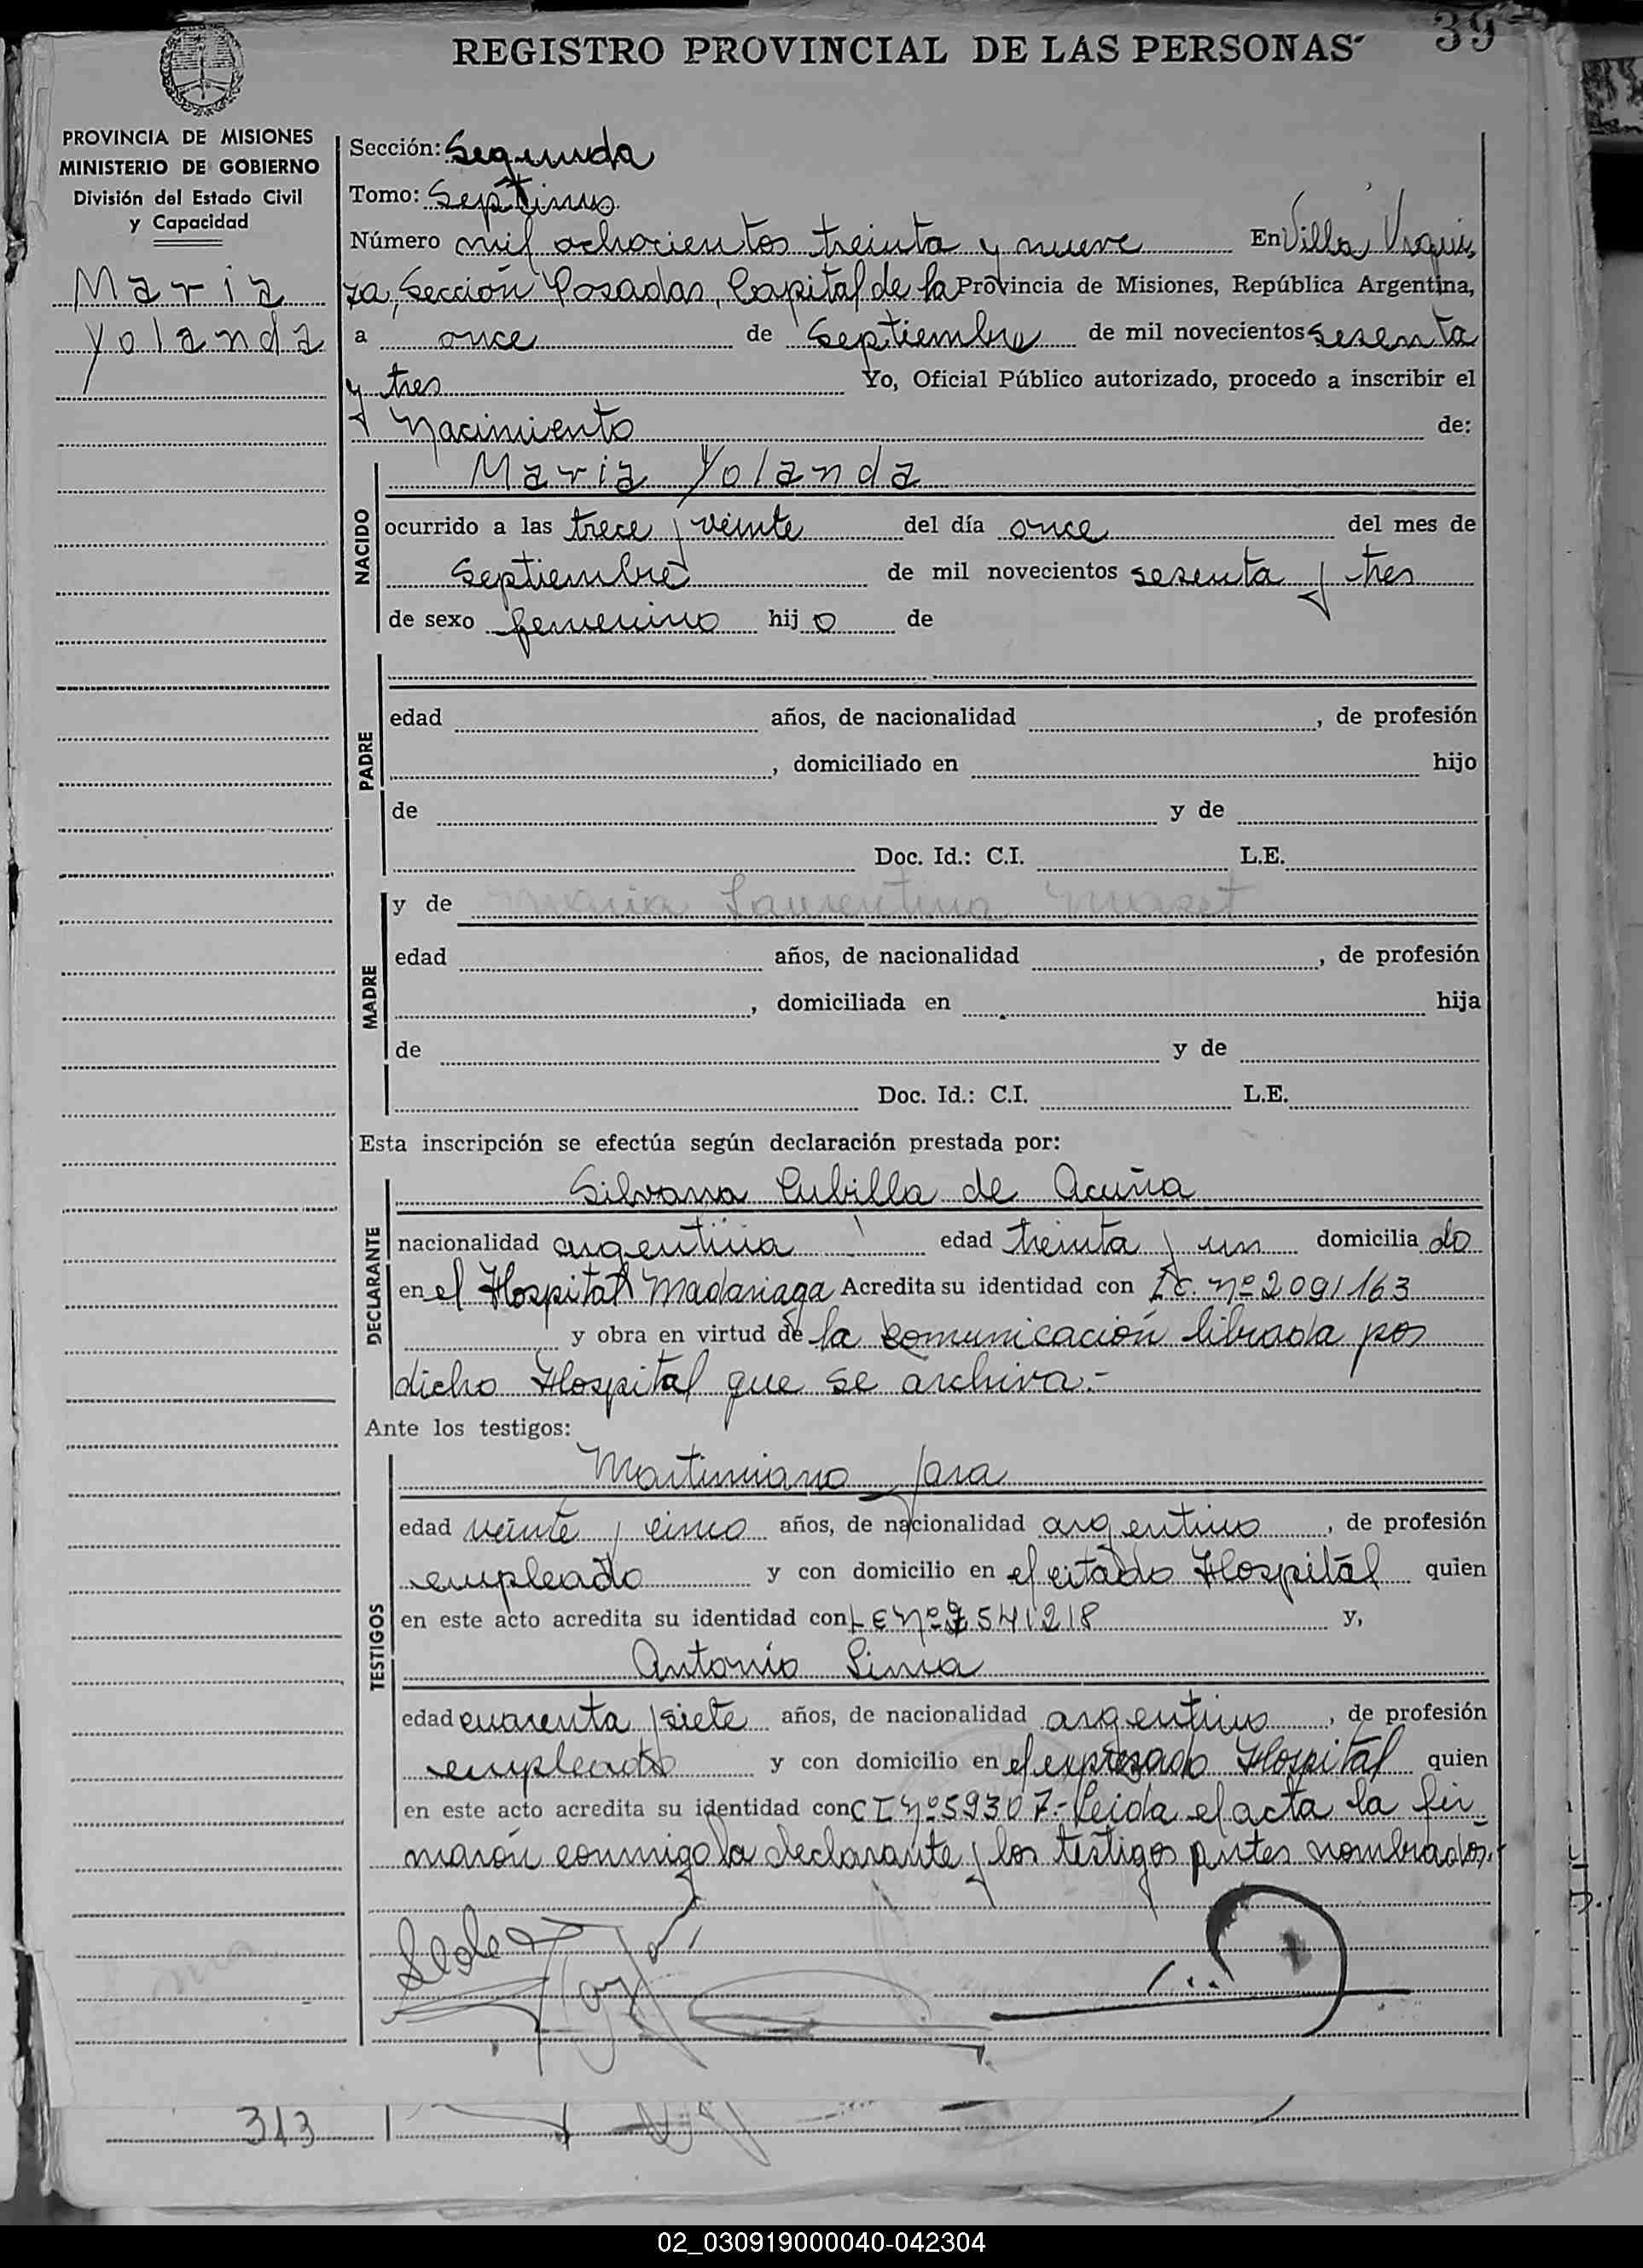 39
REGISTRO PROVINCIAL DE LAS PERSONAS
PROVINCIA DE MISIONES
MINISTERIO DE GOBIERNO
División del Estado Civil
y Capacidad
Maria
Yolanda
Sección: Segunda
Tomo: Septimo
Número mil ochocientos treinta y nueve En Villa Urqui
za, Sección Posadas, Capital de la Provincia de Misiones, República Argentina,
a once de Septiembre de mil novecientos sesenta
y tres Yo, Oficial Público autorizado, procedo a inscribir el
Nacimiento de:
NACIDO
Maria Yolanda
ocurrido a las trece y veinte del día once del mes de
Septiembre de mil novecientos sesenta y tres
de sexo femenino hij o de
PADRE
edad años, de nacionalidad , de profesión
, domiciliado en hijo
de y de
Doc. Id.: C.I. L.E.
MADRE
y de Maria Laurentina
edad años, de nacionalidad , de profesión
, domiciliada en hija
de y de
Doc. Id.: C.I. L.E.
Esta inscripción se efectúa según declaración prestada por:
DECLARANTE
Silvana Cubilla de Acuña
nacionalidad argentina edad treinta y un domicilia do
en el Hospital Madariaga Acredita su identidad con L.C. Nº 2091163
y obra en virtud de la comunicación librada por
dicho Hospital que se archiva.-
Ante los testigos:
TESTIGOS
Martimiano Jara
edad veinte y cinco años, de nacionalidad argentino , de profesión
empleado y con domicilio en el citado Hospital quien
en este acto acredita su identidad con L E Nº 7541218 y,
Antonio Lima
edad cuarenta y siete años, de nacionalidad argentino , de profesión
empleado y con domicilio en el expresado Hospital quien
en este acto acredita su identidad con C I Nº 59307.- Leida el acta la fir
marón conmigo la declarante y los testigos antes nombrados.-
313
02_030919000040-042304